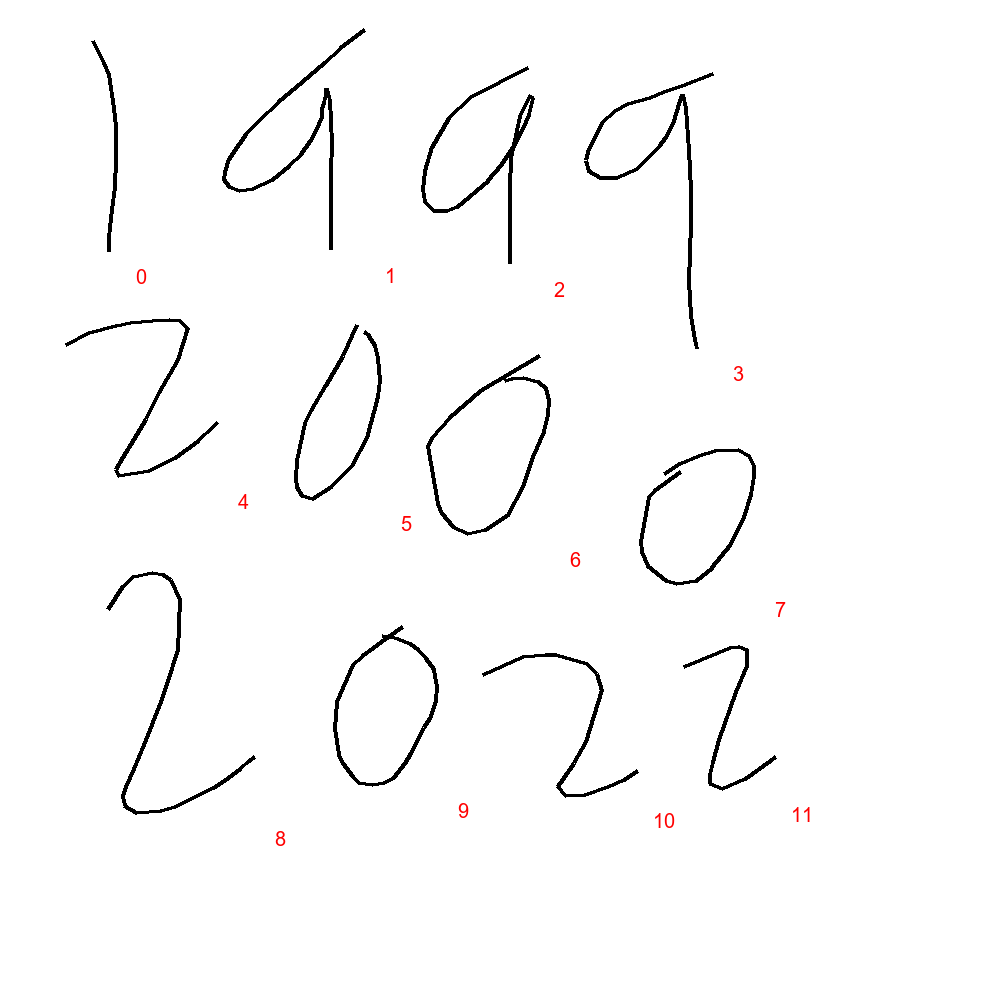 1999
0 1 2 3
2000
4 5 6 7
2022
8 9 10 11